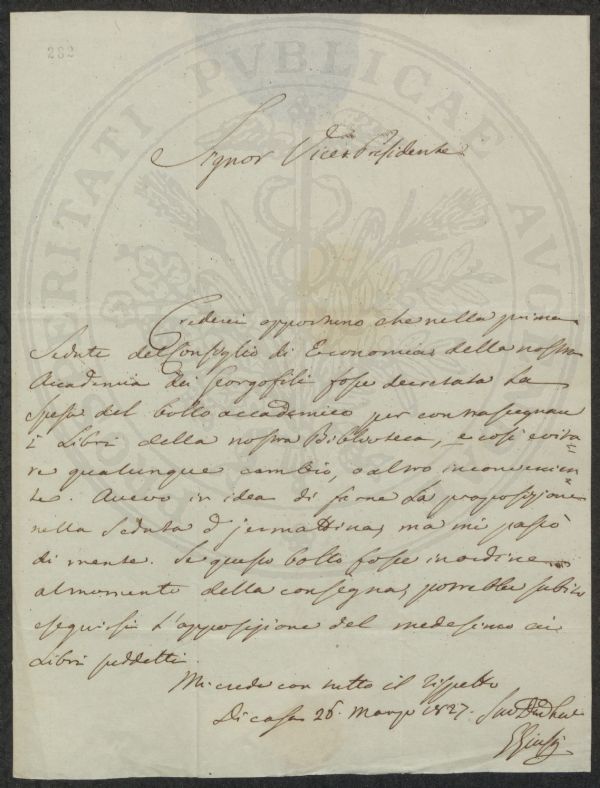 282
PROSPERITATI PVBLICAE AVGENDAE
Signor Vice Presidente
Crederei opportuno che nella prima
Seduta del Consiglio di Economia della nostra
Accademia dei Georgofili fosse decretata la
spesa del bollo accademico per contrassegnare
i Libri della nostra Biblioteca, e così evita=
re qualunque cambio, o altro inconvenien=
te. Avevo in idea di farne la proposizione
nella Seduta d'jermattina, ma mi passò
di mente. Se questo bollo fosse in ordine
al momento della consegna, potrebbe subito
eseguirsi l'apposizione del medesimo ai
Libri suddetti.
Mi credo con tutto il rispetto
Di casa 26. Marzo 1827.